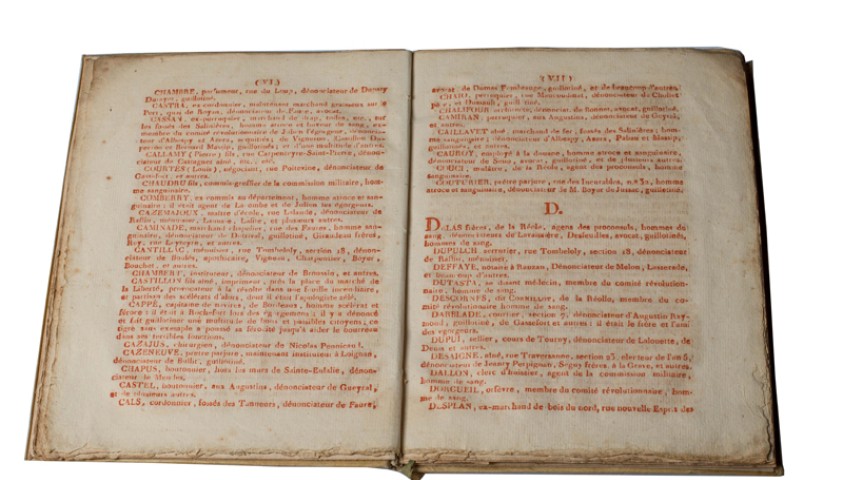 (VI.)
CHAMBRE, parfument, rue du Loup, dénonciateur de Dupuy
guillotiné.
CASTRA, ex-cordonnier, maintenant marchand graisseux sur le
Port, quai de Royan, dénonciateur de Faure, avocat.
CASSAY, ex-perruquier, marchand de drap, toiles, etc., sur
les fossés des Salinières, homme atroce et buveur de sang, ex-
membre du comité révolutionnaire de Julien l'égorgeur, dénoncia-
teur d'Albespy et Azera, guillotinés; de Vignerte,
et Bernard guillotinés, et d'une multitude d'autres.
CALLAMY (Pierre) fils, rue Carpenteyre-Saint-Pierre, dénon-
ciateur de aîné, etc., etc.
COURTÈS (Louis), négociant, rue Poitevine, dénonciateur de
Gassefort et autres.
CHAUDRU fils, commis-greffier de la commission militaire, hom-
me sanguinaire.
COMBERRY, ex-commis au département, homme atroce et san-
guinaire; il était agent de Lacombe et de Julien les égorgeurs.
CAZEMAJOUX, maître d'école, rue Lalande, dénonciateur de
Raffin, menuisier, Lassus, Lallie, et plusieurs autres.
CAMINADE, marchand chapelier, rue des Faures, homme san-
guinaire, dénonciateur de guillotiné, Giraudeau frères,
Rey, rue Leyteyre, et autres.
CANTILLAC, menuisier, rue Tombeloly, section 18, dénon-
ciateur de Budés, apothicaire, Vignes, Charpentier, Boyer,
Bouchet, et autres.
CHAMBERT, instituteur, dénonciateur de Broussin, et autres.
CASTILLON fils aîné, imprimeur, près la place du marché de
la Liberté, provocateur à la révolte dans une feuille incendiaire,
et partisan des scélérats d'alors, dont il était l'apologiste zélé.
CAPPÉ, capitaine de navire, de Bordeaux, homme sorcier et
féroce; il était à Rochefort lors des égorgemens; il y a dénoncé
et fait guillotiner une multitude de bons et paisibles citoyens; ce
tigre sans exemple a poussé sa férocité jusqu'à aider le bourreau
dans ses terribles fonctions.
CAZAJUS, chirurgien, dénonciateur de Nicolas Pommiers.
CAZENEUVE, prêtre parjure, maintenant instituteur à Loignan,
dénonciateur de Buffit, guillotiné.
CHAPUS, boutonnier, hors les murs de Sainte-Eulalie, dénon-
ciateur de
CASTEL, boutonnier, aux Augustins, dénonciateur de Gueyral,
et de plusieurs autres.
CALS, cordonnier, fossés des Tanneurs, dénonciateur de Faure,
(VII)
avocat, de Dumas guillotiné, et de beaucoup d'autres.
CHARI, perruquier, rue Mercandant, dénonciateur de
père, et Dussault, guillotiné.
CHALIFOUR, architecte, dénonciateur de avocat, guillotiné.
CAMIRAN, perruquier, aux Augustins, dénonciateur de Guyral,
et autres.
CAILLAVET aîné, marchand de fer, fossés des Salinières; hom-
me sanguinaire; dénonciateur d'Albespy, Azera, Pelou et
guillotinés, et autres.
CAUROY, employé à la douane, homme atroce et sanguinaire,
dénonciateur de avocat, guillotiné, et de plusieurs autres.
COUCI, molaire, de la Réole, agent des proconsuls, homme
sanguinaire.
COUTURIER, prêtre parjure, rue des Incurables, n.º 32, homme
atroce et sanguinaire, dénonciateur de M. Boyer de Jussas, guillotiné.
D.
DALAS frères, de la Réole, agens des proconsuls, hommes de
sang, dénonciateurs de Lavaissière, Deslnilles, avocat, guillotinés,
hommes de sang.
DUPULCH, serrurier, rue Tombeloly, section 18, dénonciateur
de Raffin, menuisier.
DEFFAYE, notaire à Bauzan, Dénonciateur de Melon, Lasserade,
et beaucoup d'autres.
DUTASTA, se disant médecin, membre du comité révolution-
naire, homme de sang.
DESCORNES, de la Réolle, membre du co-
mité révolutionnaire homme de sang.
DARBLADE, courtier, section 7, dénonciateur d'Augustin Ray-
mond, guillotiné, de Gassefort et autres; il était le frère et l'ami
des égorgeurs.
DUPUI, sellier, cours de Tourny, dénonciateur de Lalouette, de
Denis et autres.
DESAIGNE, aîné, rue Traversanne, section 23, électeur de l'an 5,
dénonciateur de Jeaury Perpignan, Segny frères, à la Grave, et autres.
DALLON, clerc d'huissier, agent de la commission militaire,
homme de sang.
DORGUEIL, orfèvre, membre du comité révolutionnaire, hom-
me de sang.
DESPLAN, ex-marchand de bois du nord, rue nouvelle Esprit des